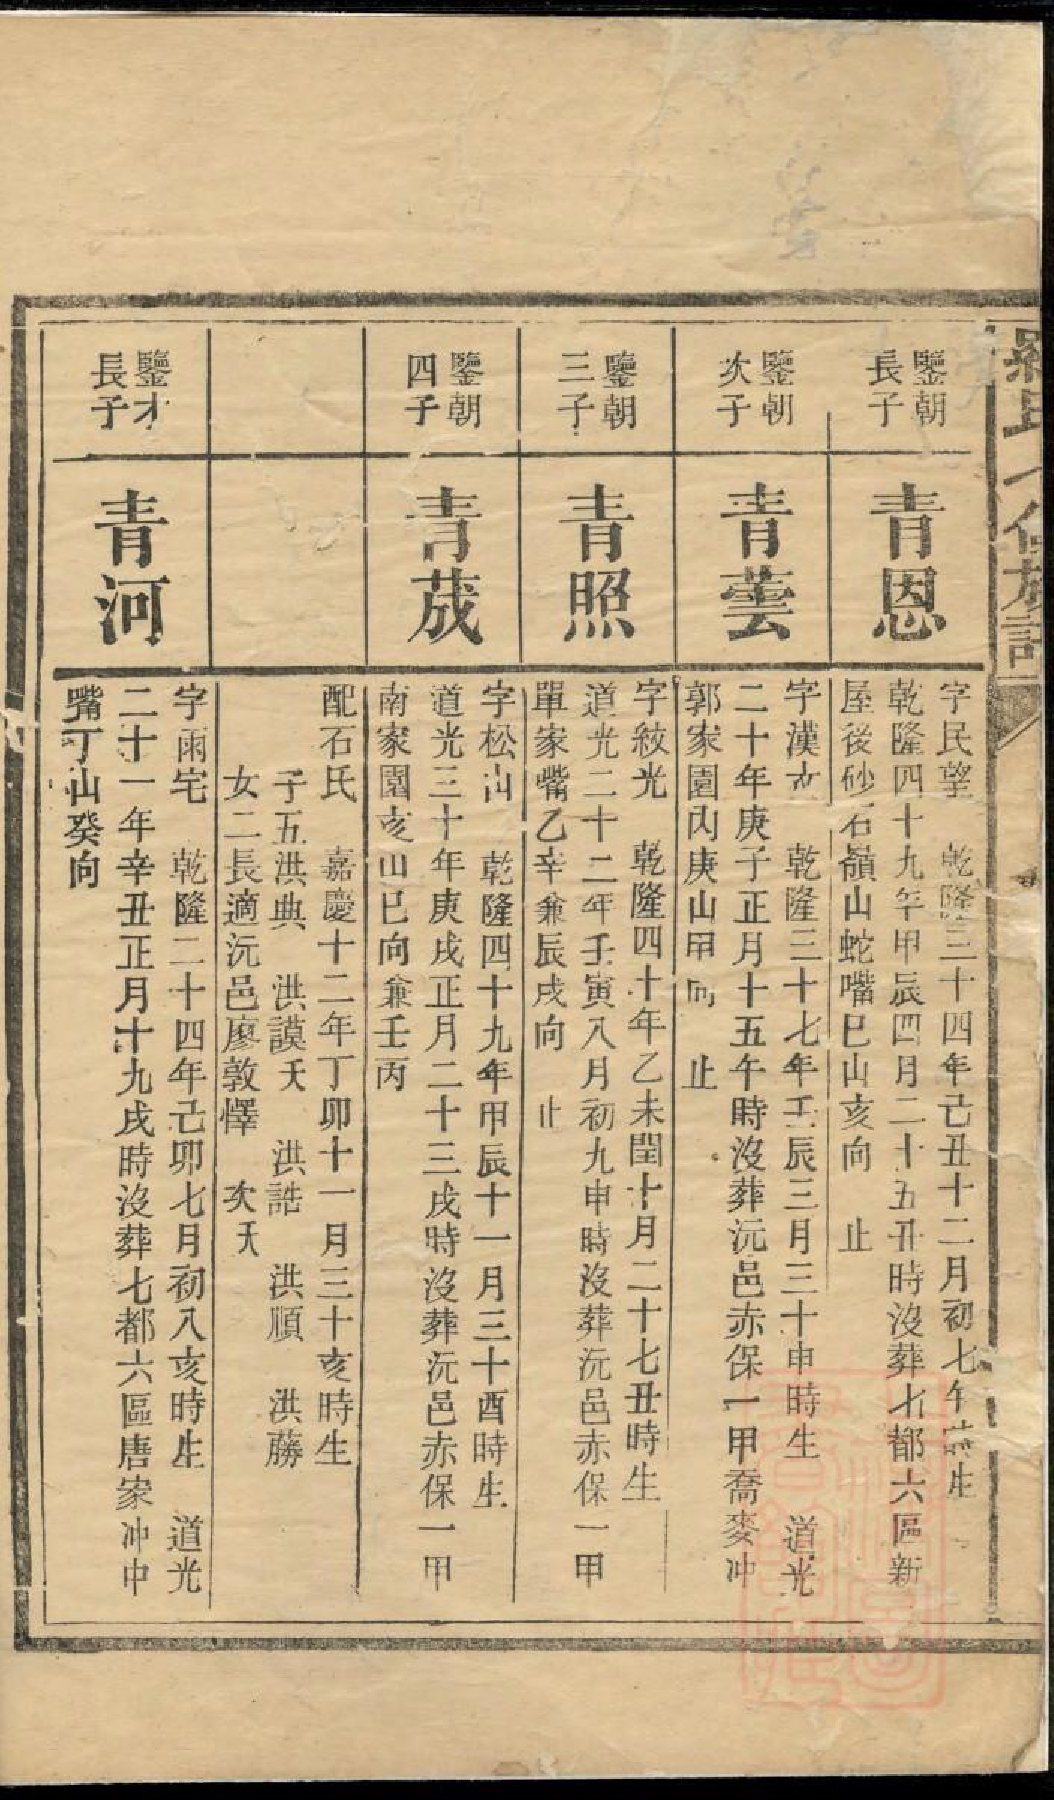 鑒朝
長子
青恩
字民望　乾隆三十四年己丑十二月初七午時生
乾隆四十九年甲辰四月二十五丑時沒葬七都六區新
屋後砂石嶺山蛇嘴巳山亥向　止
鑒朝
次子
青蕓
字漢　乾隆三十七年壬辰三月三十申時生　道光
二十年庚子正月十五午時沒葬沅邑赤保一甲喬麥冲
郭家園內庚山甲向　止
鑒朝
三子
青照
字紋光　乾隆四十年乙未閏十月二十七丑時生
道光二十二年壬寅八月初九申時沒葬沅邑赤保一甲
單家嘴乙辛兼辰戌向　止
鑒朝
四子
青茂
字松山　乾隆四十九年甲辰十一月三十酉時生
道光三十年庚戌正月二十三戌時沒葬沅邑赤保一甲
南家園亥山巳向兼壬丙
配石氏　嘉慶十二年丁卯十一月三十亥時生
子五洪典　洪謨夭　洪誥　洪順　洪勝
女二長適沅邑廖敦懌　次夭
鑒才
長子
青河
字雨宅　乾隆二十四年己卯七月初八亥時生　道光
二十一年辛丑正月十九戌時沒葬七都六區唐家冲中
嘴丁山癸向